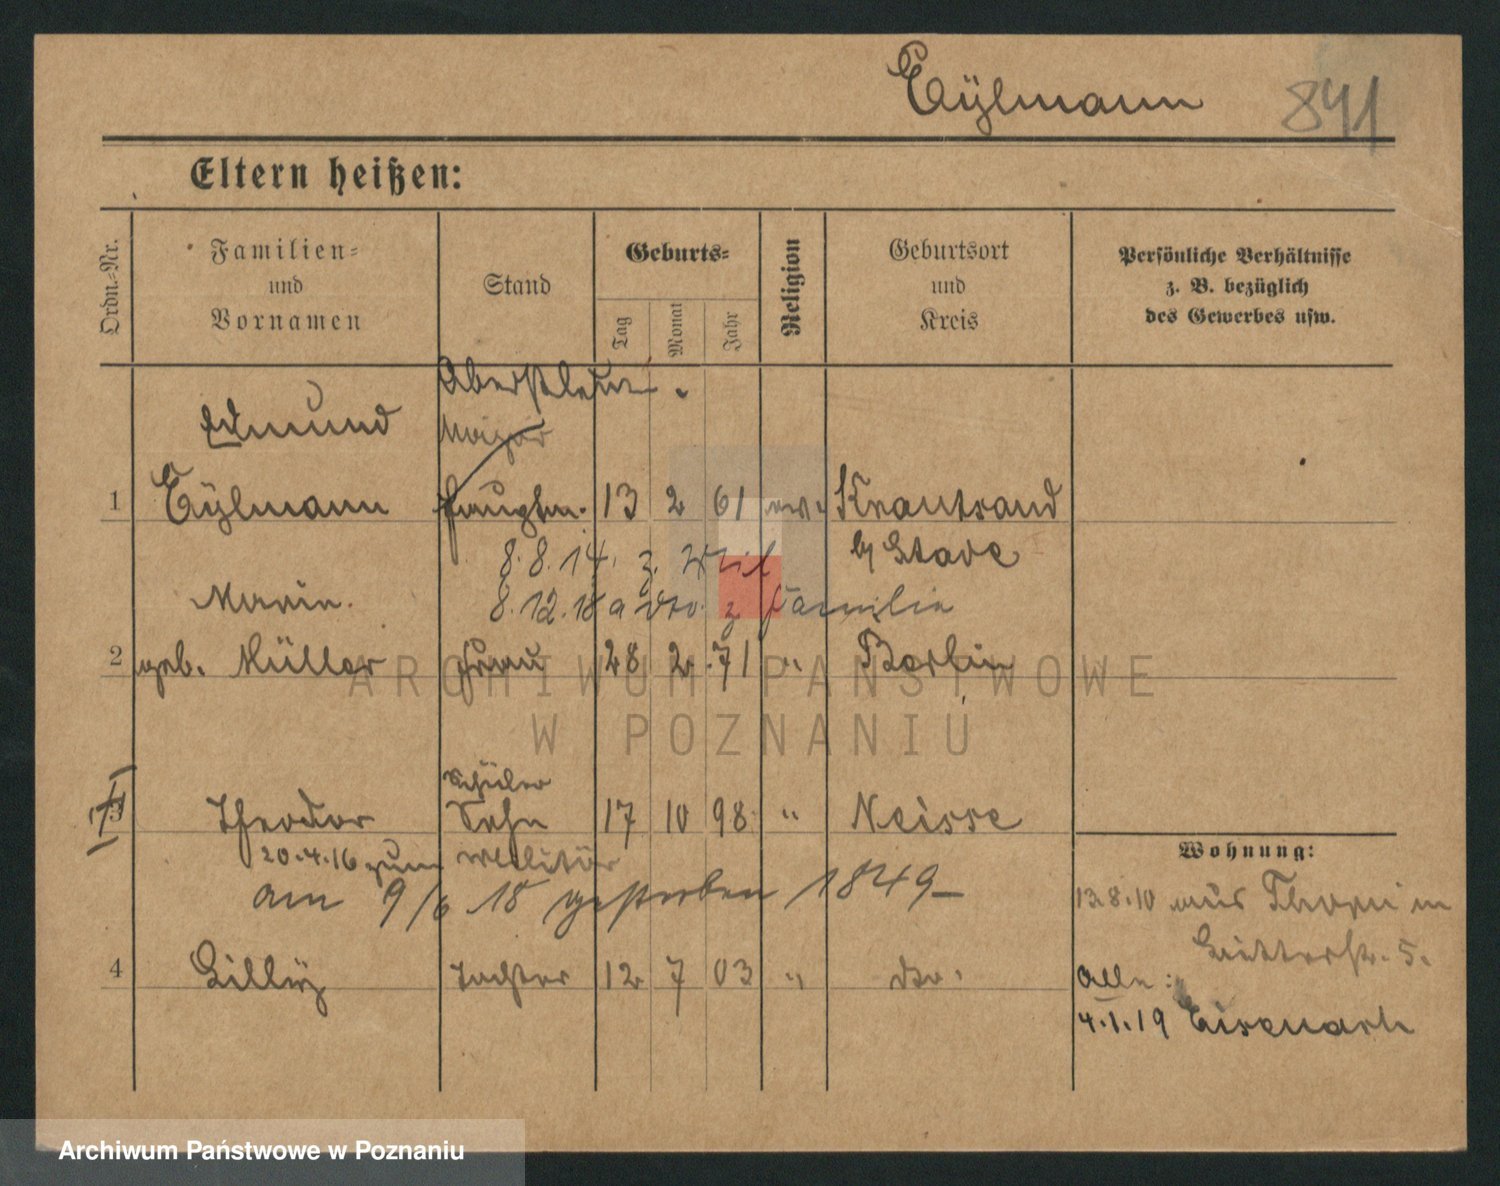 Eÿlmann 841
Eltern heißen:
Ordn.-Nr.
Familien=
und
Vornamen
Stand
Geburts=
Tag
Monat
Jahr
Religion
Geburtsort
und
Kreis
Persönliche Verhältnisse
z. B. bezüglich
des Gewerbes usw.
Oberstleutn.
Edmund Major
1 Eÿlmann Hauptm. 13 2 61 ev. Krautsand
8.8.14. z. b/ Stade
Marie. 8.12.18 a dto. z Familie
2 geb. Müller Frau 28 2 71 " Berlin
Schüler
3 Theodor Sohn 17 10 98 " Neisse
20.4.16 zum Militär
Wohnung:
am 9/6 18 gestorben 1849
13.8.10 aus Thorn in
4 Lilly Tochter 12 7 03 " dto.
5.
Alle:
4.1.19 Eisenach
ARCHIWUM PAŃSTWOWE
W POZNANIU
Archiwum Państwowe w Poznaniu